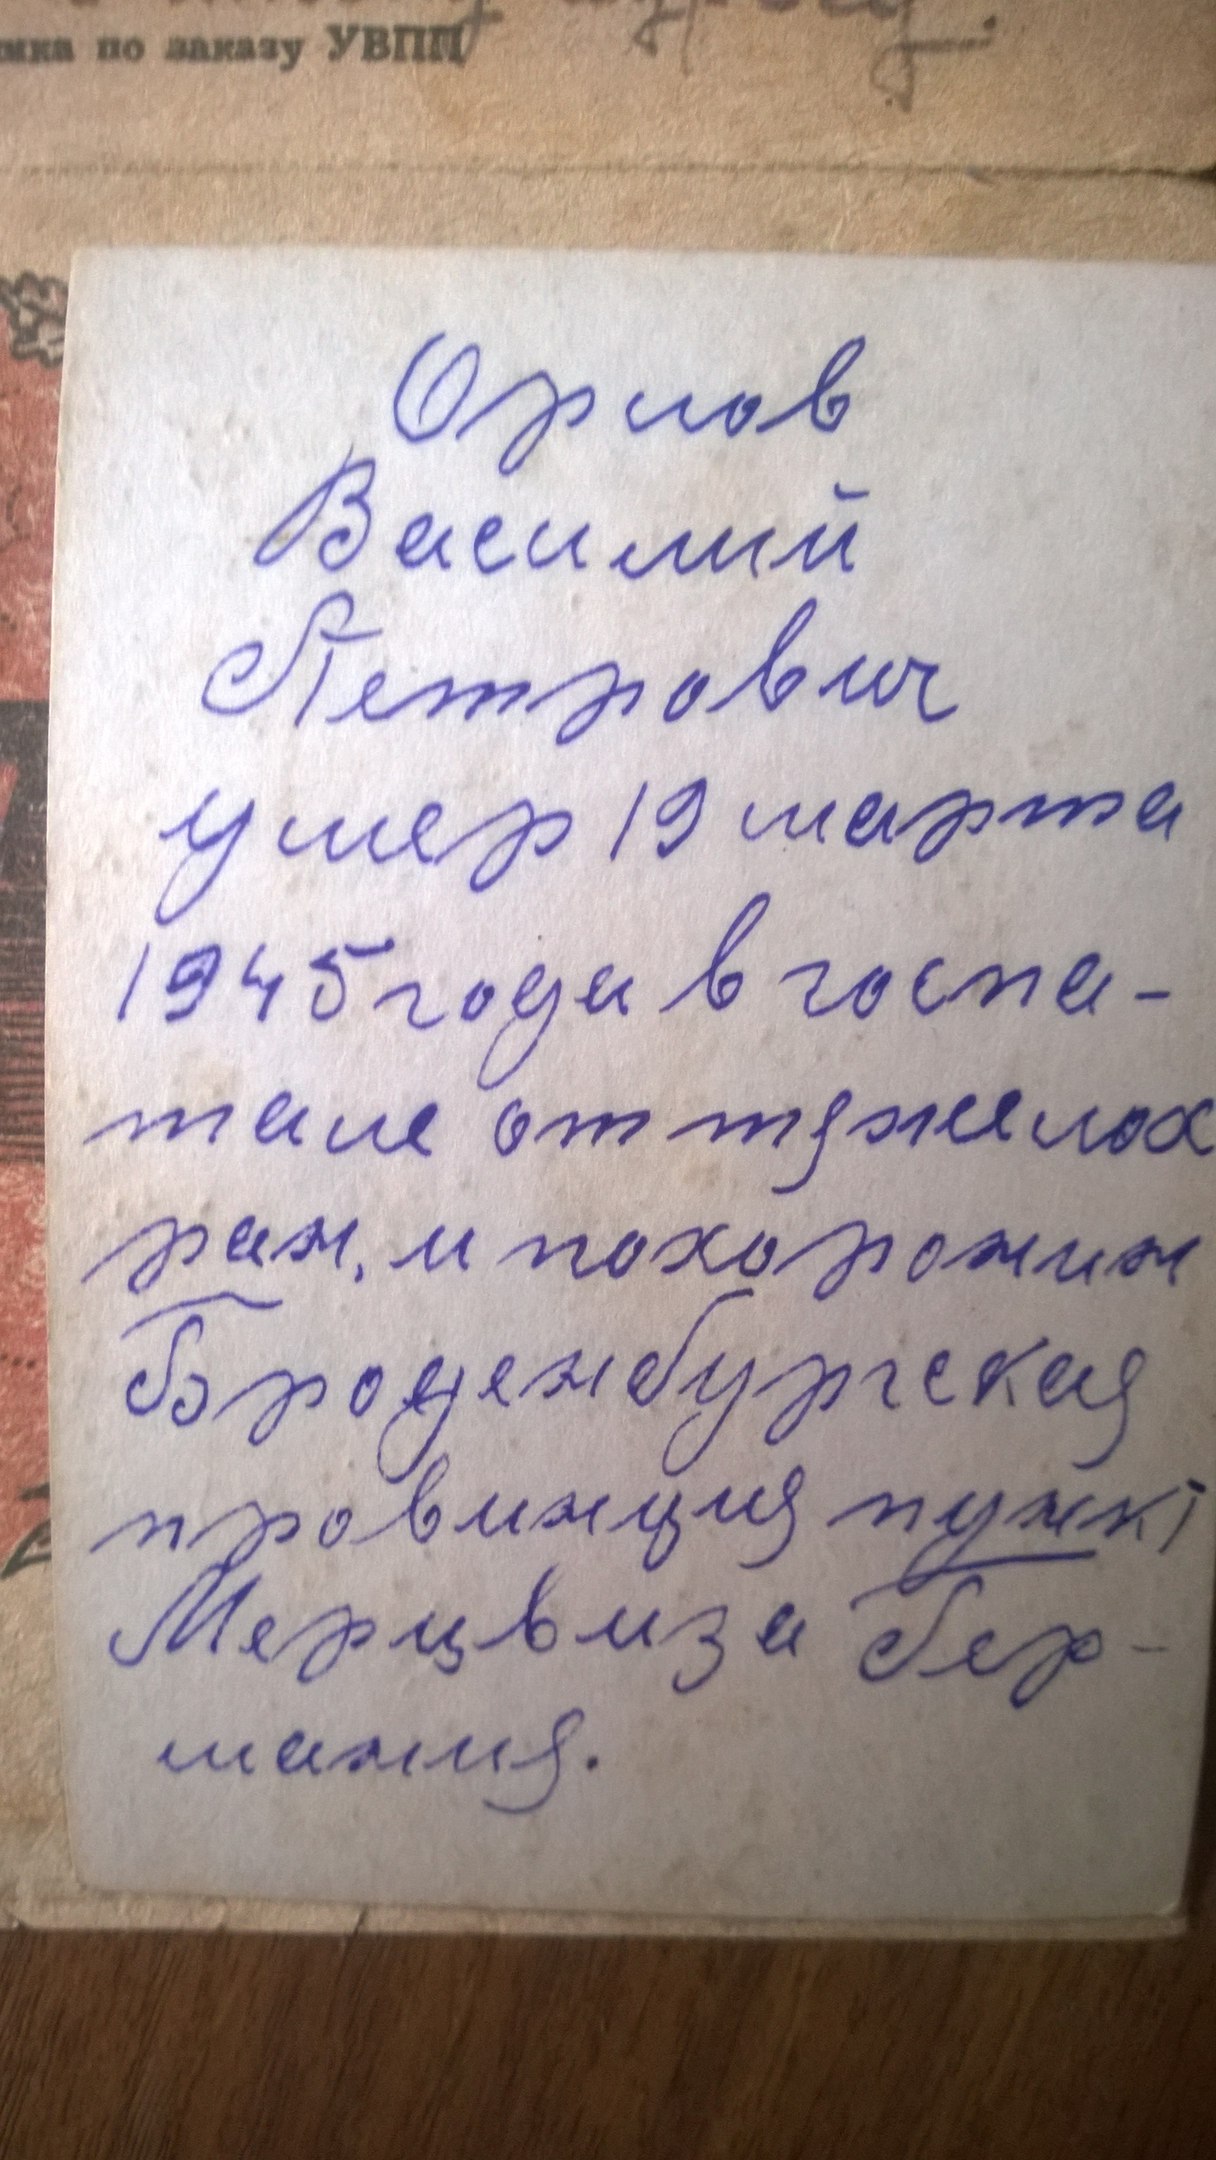 по заказу УВПП
Орлов
Василий
Петрович
умер 19 марта
1945 года в госпа-
тале от тяжелох
ран, и похоронин
Бэроденбургская
провинция пункт
Мерцвиза Гер-
мания.